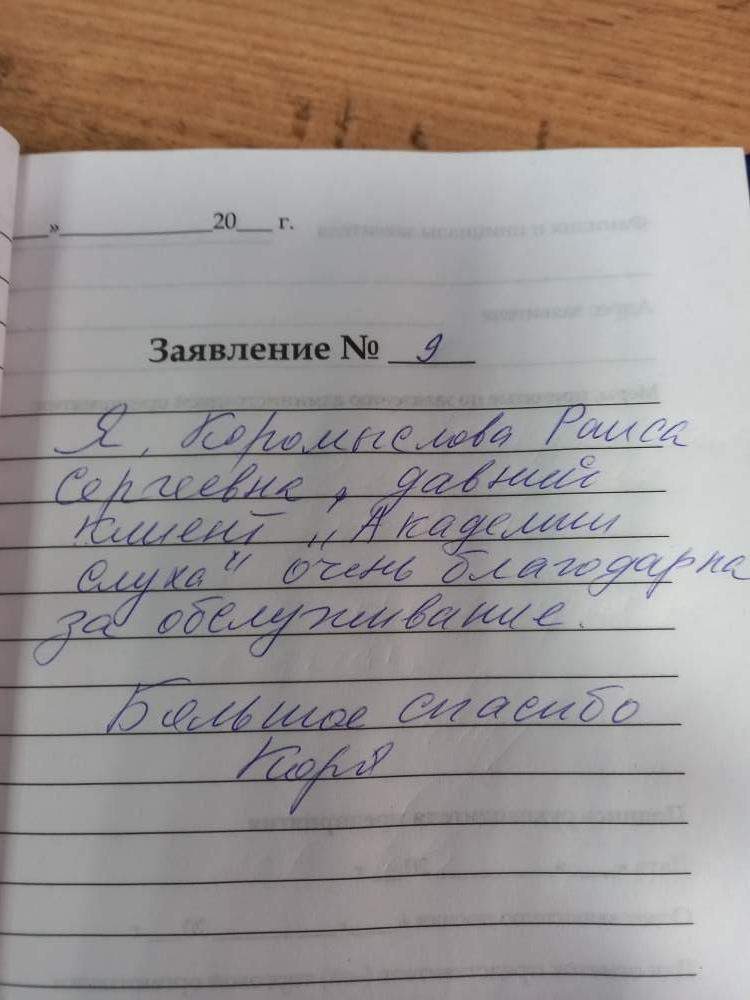 ____»______________20___ г.
Заявление № 9
Я, Коромыслова Раиса
Сергеевна, давний
клиент „Академии
слуха" очень благодарна
за обслуживание.
Большое спасибо